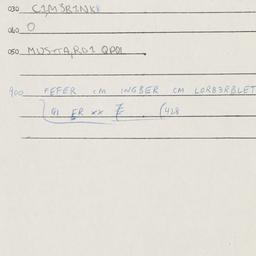 030 CIMSRINK
040 O
050 MUSTARDI
900 FEFER CM INGBER CM LORBERBLET
GI ER xx (428